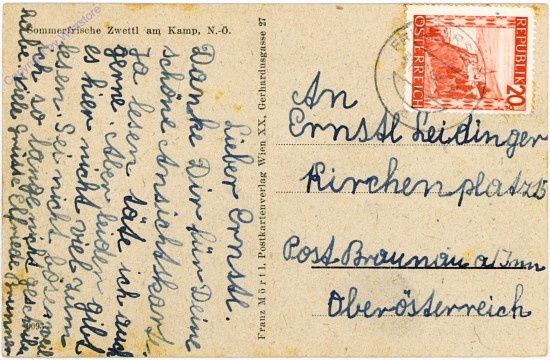 Sommerfrische Zwettl am Kamp, N.-Ö.
Lieber Ernstl.
Danke Dir für Deine
schöne Ansichtskart.
Ja lesen täte ich auch
gerne. Aber leider gibt
es hier nicht viel zum
lesen. Sei nicht böse weil
ich so lange nicht geschrieben
habe. Viele Grüsse Elfriede Brunner
Franz Mörtl, Postkartenverlag Wien XX, Gerhardusgasse 27
REPUBLIK
ÖSTERREICH
20
An
Ernstl Leidinger
Kirchenplatz 25
Post Braunau a/Inn
Oberösterreich